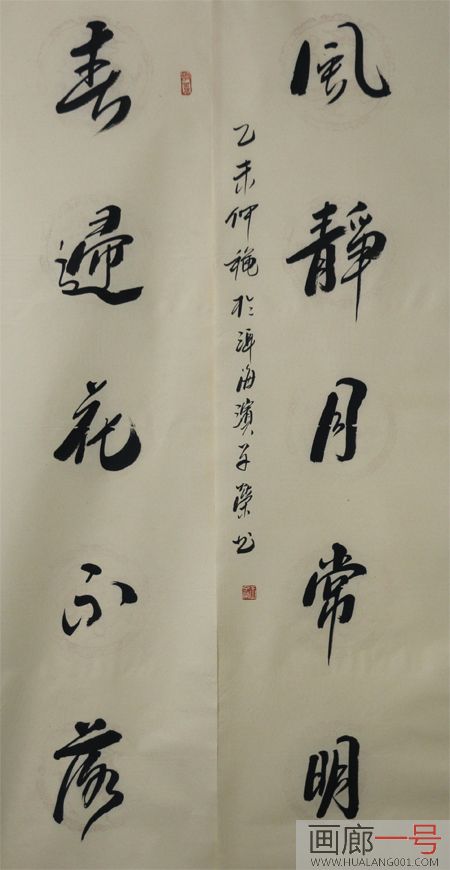 風靜月常明
乙未仲穐於洱海濱子榮书
春歸花不落
画廊一号
WWW.HUALANG001.COM